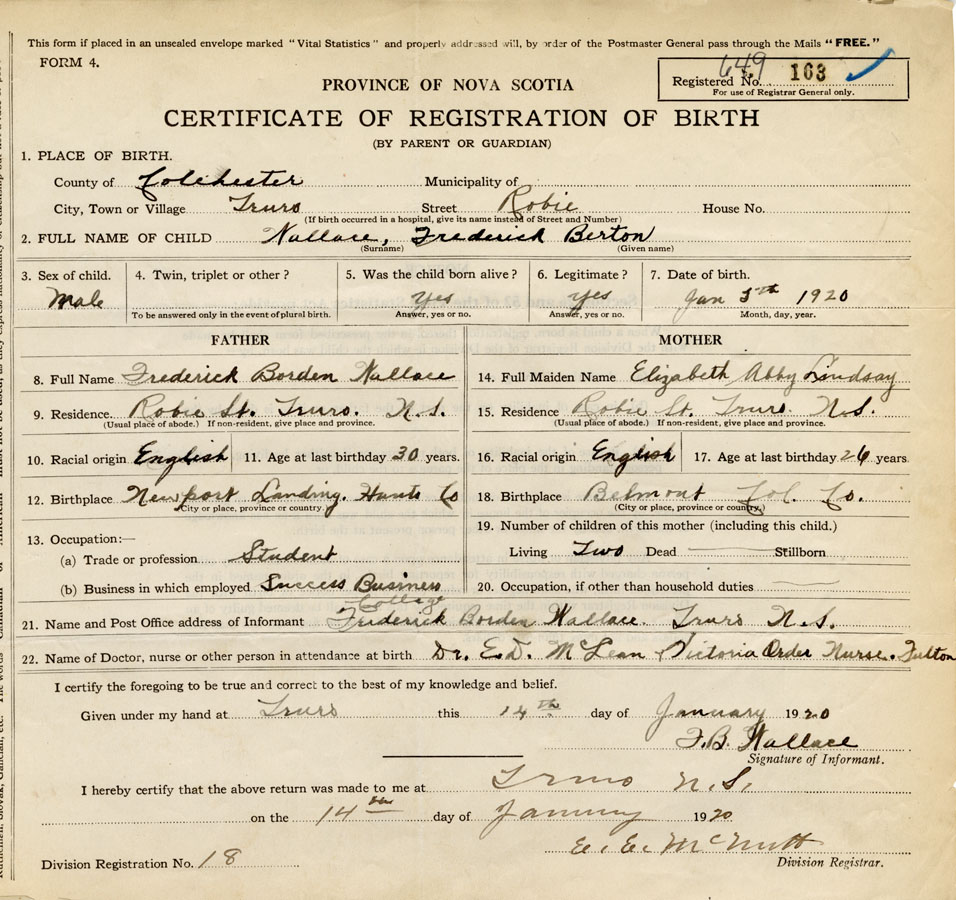 This form if placed in an unsealed envelope marked "Vital Statistics" and properly addressed will, by order of the Postmaster General pass through the Mails "FREE."
FORM 4.
649
Registered No. 163
For use of Registrar General only.
PROVINCE OF NOVA SCOTIA
CERTIFICATE OF REGISTRATION OF BIRTH
(BY PARENT OR GUARDIAN)
1. PLACE OF BIRTH.
County of Colchester Municipality of
City, Town or Village Truro Street Robie House No.
(If birth occurred in a hospital, give its name instead of Street and Number)
2. FULL NAME OF CHILD Wallace, Frederick Berton
(Surname) (Given name)
3. Sex of child. 4. Twin, triplet or other? 5. Was the child born alive? 6. Legitimate? 7. Date of birth.
Male yes yes Jan 5th 1920
To be answered only in the event of plural birth. Answer, yes or no. Answer, yes or no. Month, day, year.
FATHER
8. Full Name Frederick Borden Wallace
9. Residence. Robie St. Truro. N.S.
(Usual place of abode.) If non-resident, give place and province.
10. Racial origin English 11. Age at last birthday 30 years.
12. Birthplace Newport Landing. Hants Co
(City or place, province or country.)
13. Occupation:—
(a) Trade or profession Student
(b) Business in which employed Success Business
College
MOTHER
14. Full Maiden Name Elizabeth Abby Lindsay
15. Residence Robie St. Truro. N.S.
(Usual place of abode.) If non-resident, give place and province.
16. Racial origin English 17. Age at last birthday 26 years.
18. Birthplace Belmont Col. Co.
(City or place, province or country.)
19. Number of children of this mother (including this child.)
Living Two Dead Stillborn
20. Occupation, if other than household duties
21. Name and Post Office address of Informant Frederick Borden Wallace. Truro N.S.
22. Name of Doctor, nurse or other person in attendance at birth Dr. E.D. McLean & Victoria Order Nurse. Fulton
I certify the foregoing to be true and correct to the best of my knowledge and belief.
Given under my hand at Truro this 14th day of January 1920
F.B. Wallace
Signature of Informant.
I hereby certify that the above return was made to me at Truro N.S.
on the 14th day of January 1920
E. E. McNutt
Division Registration No. 18 Division Registrar.